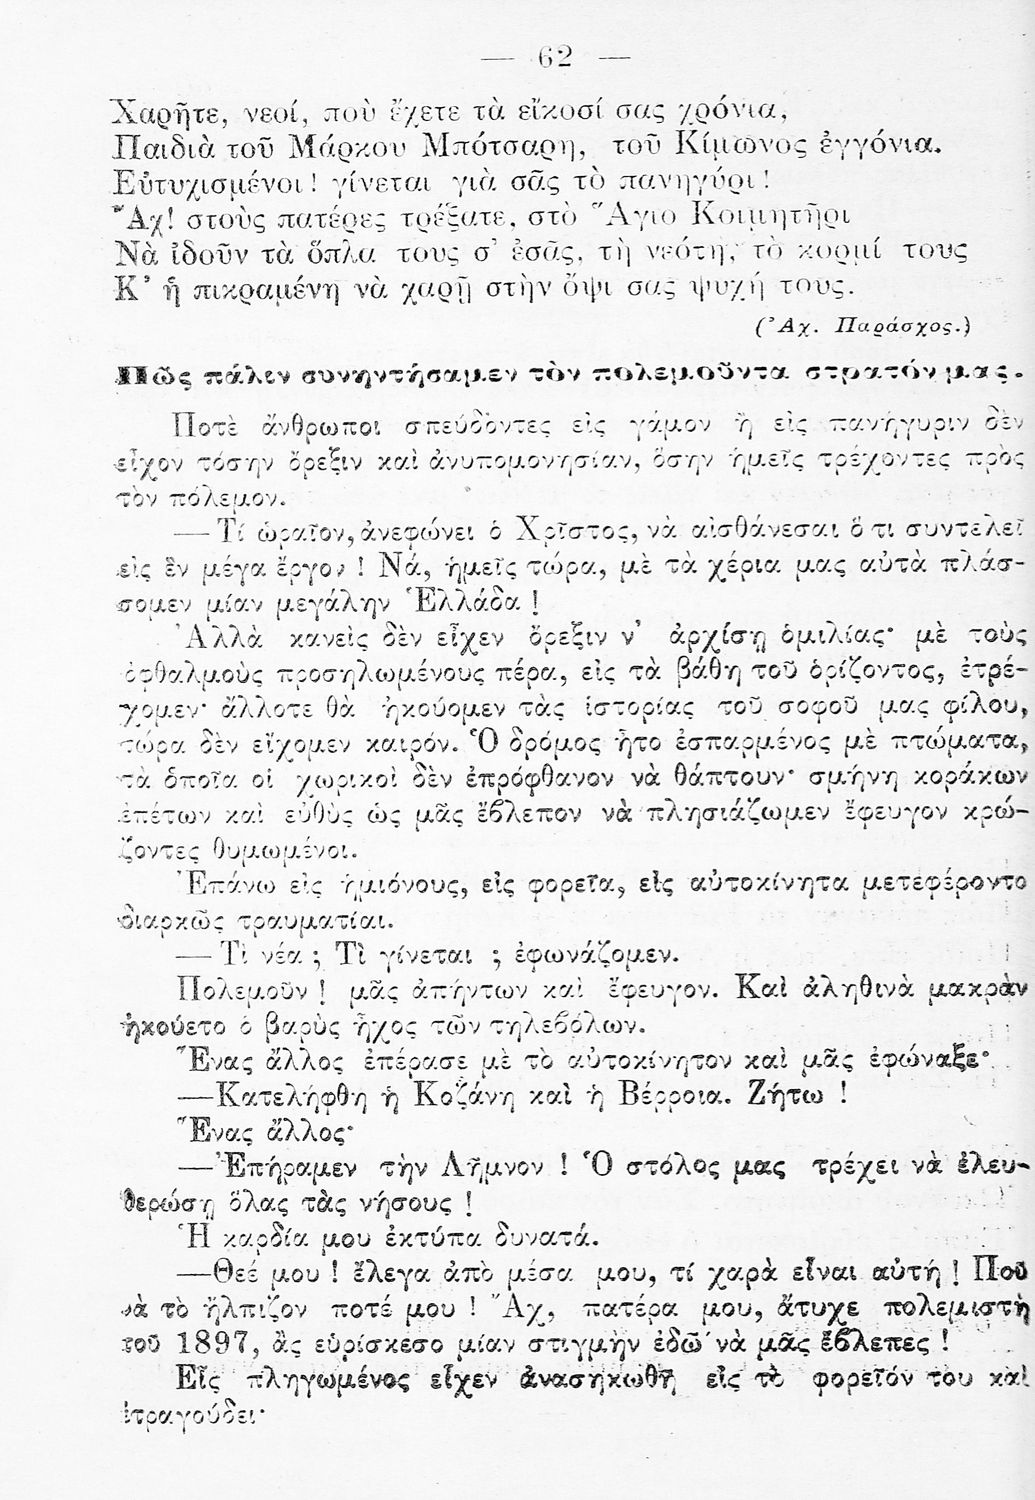 — 62 —
Χαρῆτε, νεοί, ποὺ ἔχετε τὰ εἴκοσί σας χρόνια,
Παιδιὰ τοῦ Μάρκου Μπότσαρη, τοῦ Κίμωνος ἐγγόνια.
Εὐτυχισμένοι! γίνεται γιὰ σᾶς τὸ πανηγύρι!
Ἄχ! στοὺς πατέρες τρέξατε, στὸ Ἅγιο Κοιμητῆρι
Νὰ ἰδοῦν τὰ ὅπλα τους σ' ἐσᾶς, τὴ νεότη, τὸ κορμί τους
Κ' ἡ πικραμένη νὰ χαρῇ στὴν ὄψι σας ψυχή τους.
(Ἀχ. Παράσχος.)
Πῶς πάλιν συνηντήσαμεν τὸν πολεμοῦντα στρατόν μας.
Ποτὲ ἄνθρωποι σπεύδοντες εἰς γάμον ἢ εἰς πανήγυριν δὲν
εἶχον τόσην ὄρεξιν καὶ ἀνυπομονησίαν, ὅσην ἡμεῖς τρέχοντες πρὸς
τὸν πόλεμον.
— Τί ὡραῖον, ἀνεφώνει ὁ Χρῖστος, νὰ αἰσθάνεσαι ὅτι συντελεῖ
εἰς ἓν μέγα ἔργον! Νά, ἡμεῖς τώρα, μὲ τὰ χέρια μας αὐτὰ πλάσ-
σομεν μίαν μεγάλην Ἑλλάδα!
Ἀλλὰ κανεὶς δὲν εἶχεν ὄρεξιν ν' ἀρχίσῃ ὁμιλίας· μὲ τοὺς
ὀφθαλμοὺς προσηλωμένους πέρα, εἰς τὰ βάθη τοῦ ὁρίζοντος, ἐτρέ-
χομεν· ἄλλοτε θὰ ἠκούομεν τὰς ἱστορίας τοῦ σοφοῦ μας φίλου,
τώρα δὲν εἴχομεν καιρόν. Ὁ δρόμος ἦτο ἐσπαρμένος μὲ πτώματα,
τὰ ὁποῖα οἱ χωρικοὶ δὲν ἐπρόφθανον νὰ θάπτουν· σμήνη κοράκων
ἐπέτων καὶ εὐθὺς ὡς μᾶς ἔβλεπον νὰ πλησιάζωμεν ἔφευγον κρώ-
ζοντες θυμωμένοι.
Ἐπάνω εἰς ἡμιόνους, εἰς φορεῖα, εἰς αὐτοκίνητα μετεφέροντο
διαρκῶς τραυματίαι.
— Τὶ νέα; Τὶ γίνεται; ἐφωνάζομεν.
Πολεμοῦν! μᾶς ἀπήντων καὶ ἔφευγον. Καὶ ἀληθινὰ μακρὰν
ἠκούετο ὁ βαρὺς ἦχος τῶν τηλεβόλων.
Ἕνας ἄλλος ἐπέρασε μὲ τὸ αὐτοκίνητον καὶ μᾶς ἐφώναξε·
—Κατελήφθη ἡ Κοζάνη καὶ ἡ Βέρροια. Ζήτω!
Ἕνας ἄλλος·
—Ἐπήραμεν τὴν Λῆμνον! Ὁ στόλος μας τρέχει νὰ ἐλευ-
θερώσῃ ὅλας τὰς νήσους!
Ἡ καρδία μου ἐκτύπα δυνατά.
—Θεέ μου! ἔλεγα ἀπὸ μέσα μου, τί χαρὰ εἶναι αὐτή! Ποῦ
νὰ τὸ ἤλπιζον ποτέ μου! Ἄχ, πατέρα μου, ἄτυχε πολεμιστὴ
τοῦ 1897, ἂς εὑρίσκεσο μίαν στιγμὴν ἐδῶ νὰ μᾶς ἔβλεπες!
Εἷς πληγωμένος εἶχεν ἀνασηκωθῆ εἰς τὸ φορεῖόν του καὶ
ἐτραγούδει·